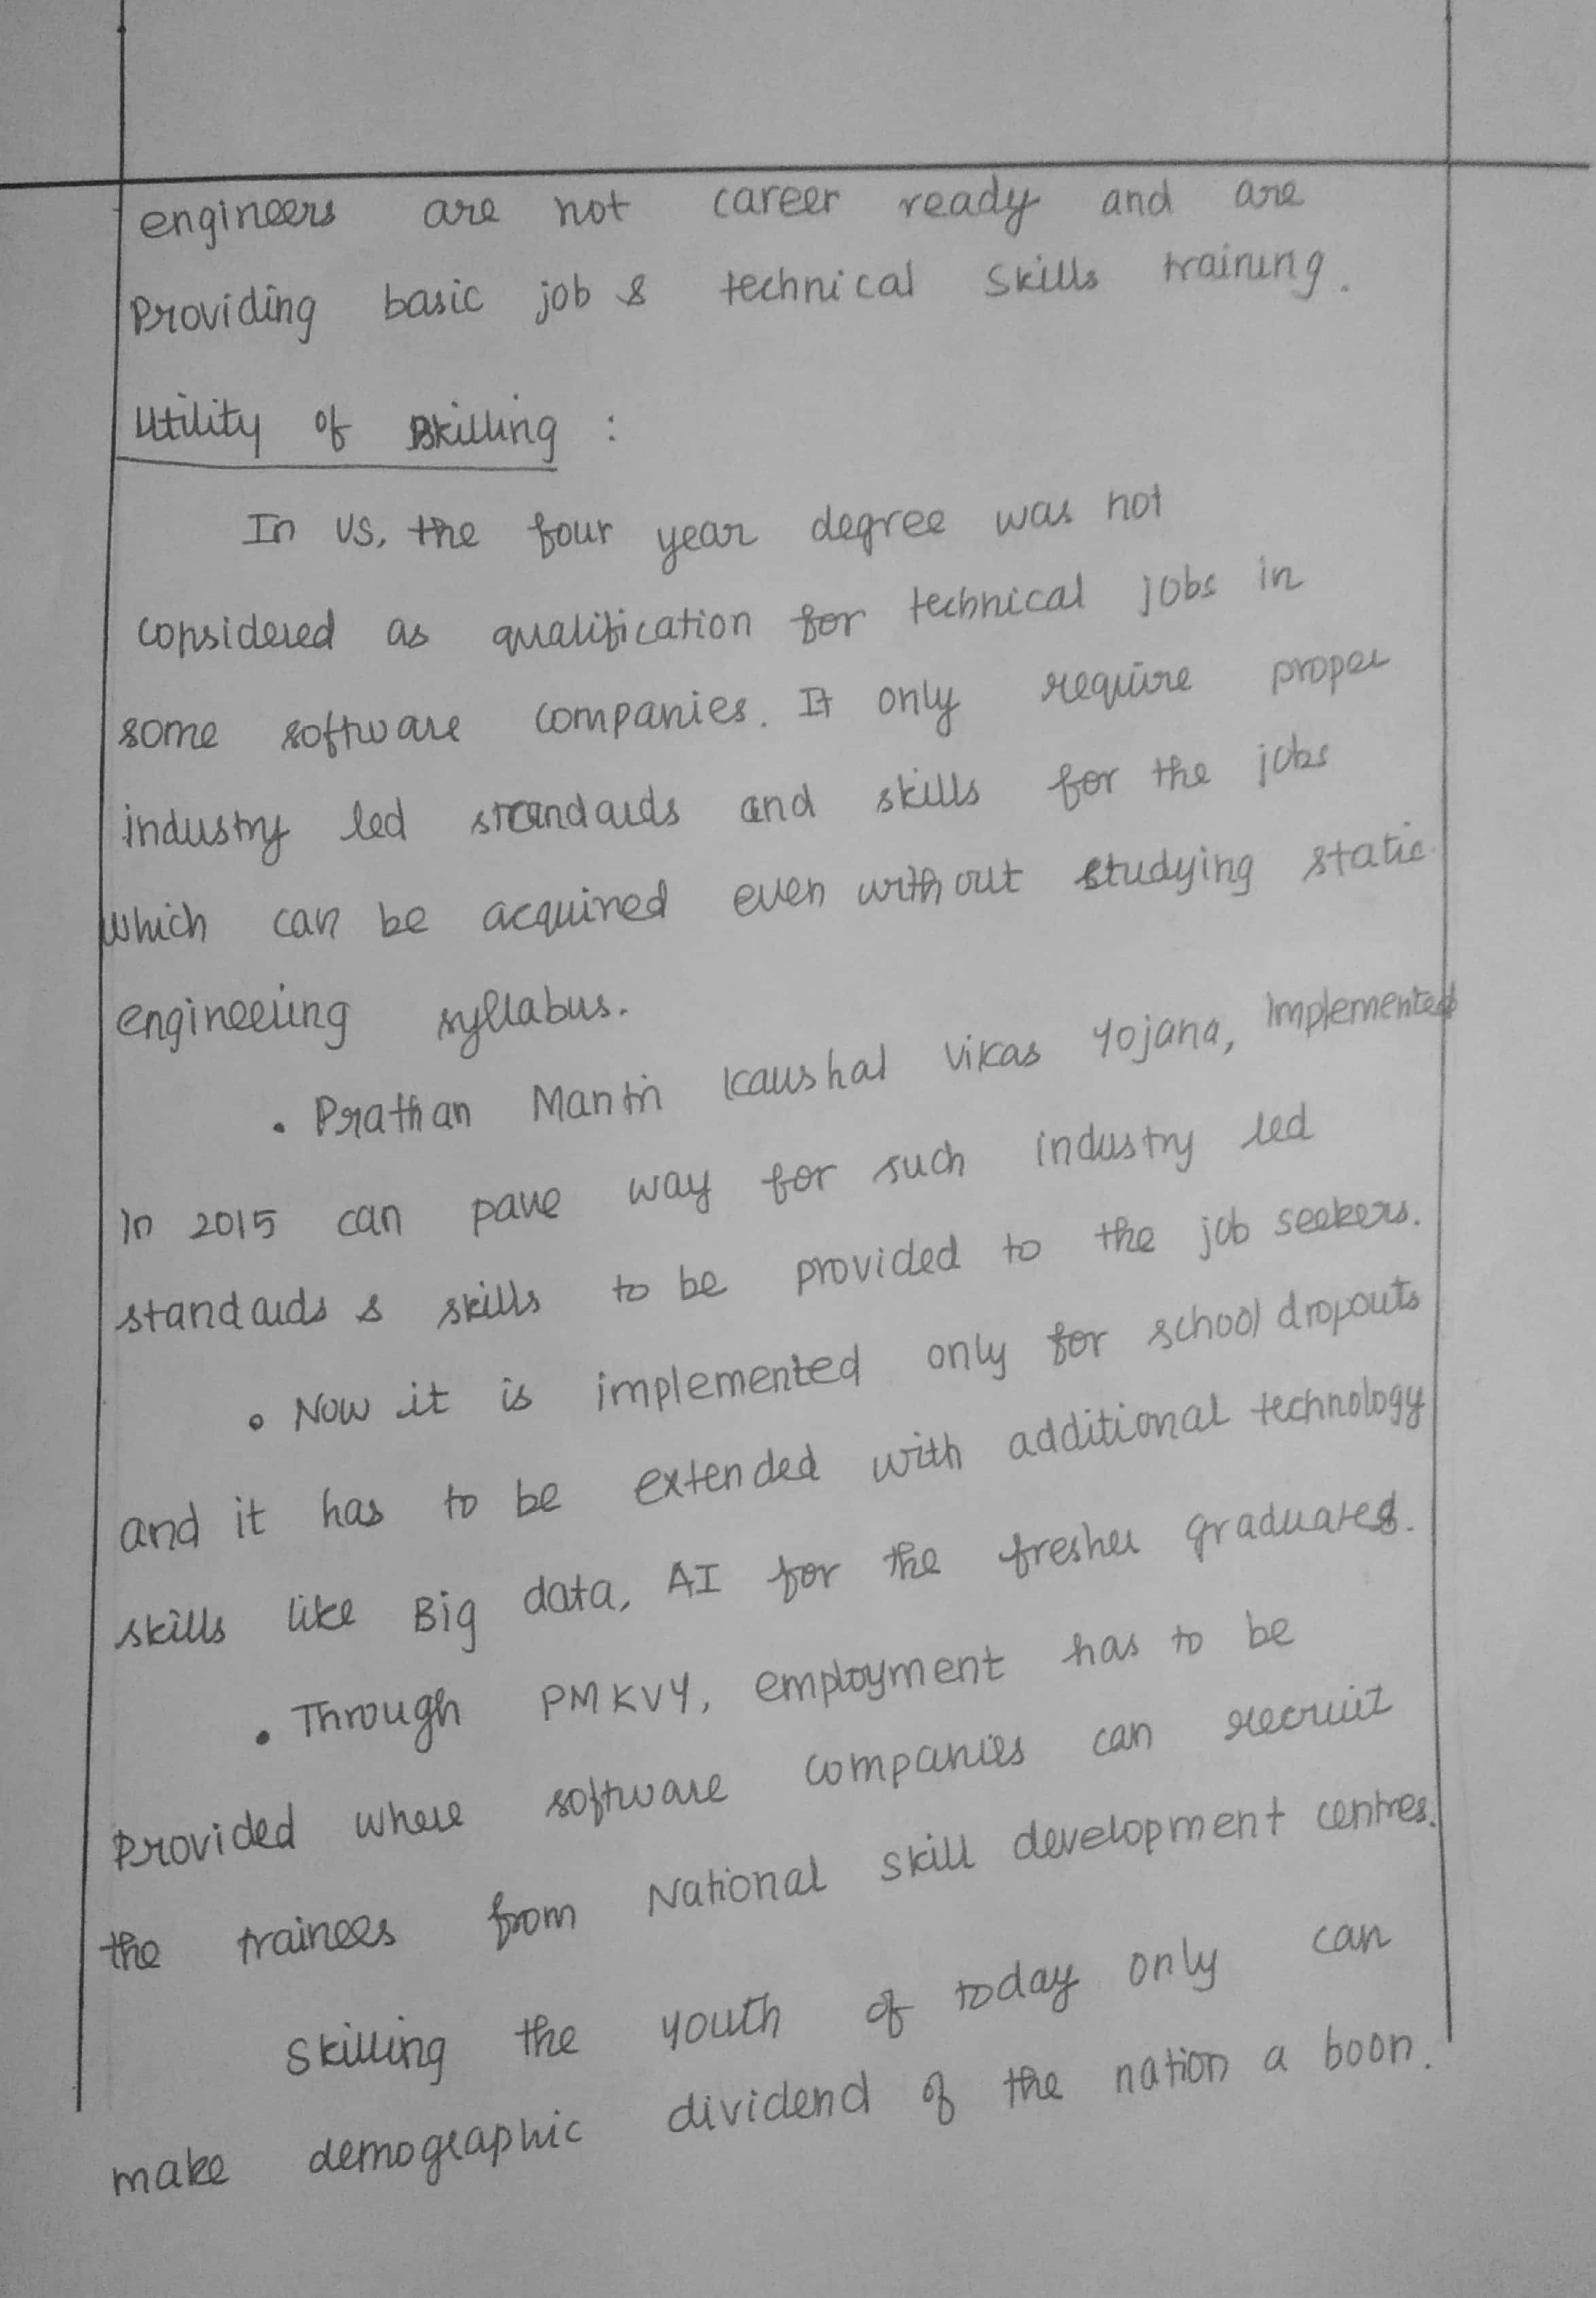 engineers are not career ready and are
Providing basic job & technical skills training.
Utility of Skilling :
In US, the four year degree was not
considered as qualification for technical jobs in
some software companies. It only require proper
industry led standards and skills for the jobs
which can be acquired even without studying static
engineering syllabus.
• Prathan Mantri Kaushal Vikas Yojana, Implemented
In 2015 can pave way for such industry led
standards & skills to be provided to the job seekers.
• Now it is implemented only for school dropouts
and it has to be extended with additional technology
skills like Big data, AI for the fresher graduates.
• Through PMKVY, employment has to be
Provided where software companies can recruit
the trainees from National skill development centres.
Skilling the youth of today only can
make demographic dividend of the nation a boon.